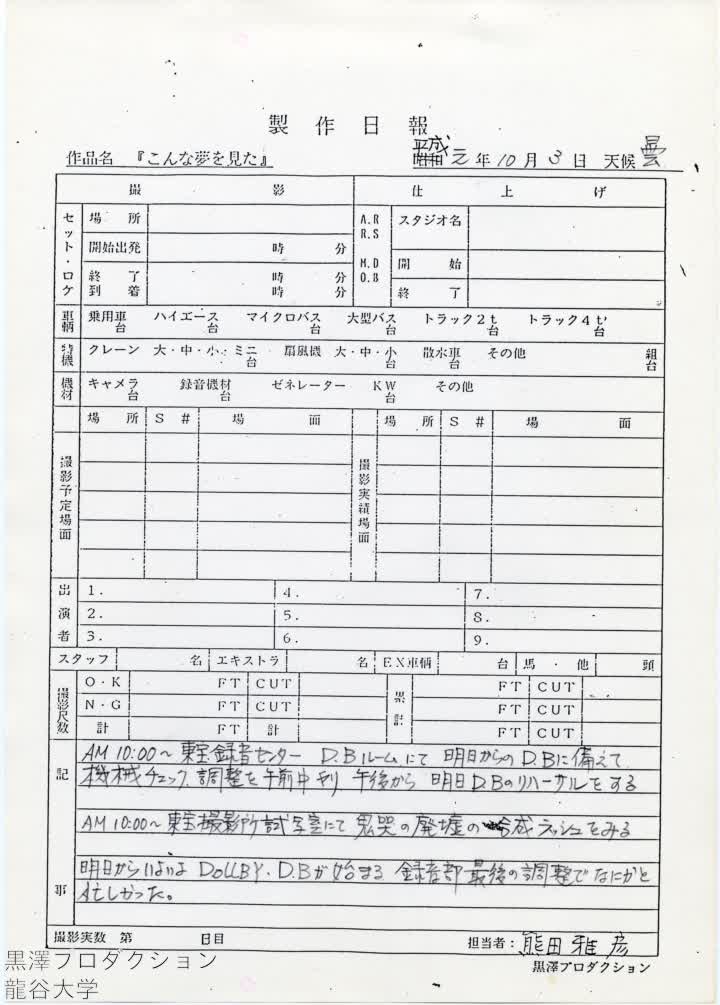 製作日報
作品名 『こんな夢を見た』 昭和 平成 元年 10月 3日 天候 曇
撮影 仕上げ
セット・ロケ 場所 A.R R.S M.D D.B スタジオ名
開始出発 時 分 開始
終了到着 時 分 時 分 終了
車輌 乗用車 台 ハイエース 台 マイクロバス 台 大型バス 台 トラック2t 台 トラック4t 台
特機 クレーン 大・中・小・ミニ 台 扇風機 大・中・小 台 散水車 台 その他 組 台
機材 キャメラ 台 録音機材 台 ゼネレーター KW 台 その他
場所 S# 場面 場所 S# 場面
撮影予定場面 撮影実績場面
出演者 1. 4. 7.
2. 5. 8.
3. 6. 9.
スタッフ 名 エキストラ 名 EX車輌 台 馬・他 頭
撮影尺数 O・K FT CUT 累計 FT CUT
N・G FT CUT FT CUT
計 FT 計 FT CUT
記事
AM 10:00～ 東宝録音センター D.Bルームにて 明日からのD.Bに備えて
機械チェック、調整を午前中やり、午後から 明日D.Bのリハーサルをする
AM 10:00～ 東宝撮影所試写室にて 鬼哭の廃墟の 合成ラッシュをみる
明日からいよいよ DOLLBY・D.Bが始まる 録音部最後の調整でなにかと
忙しかった。
撮影実数 第 日目 担当者: 熊田雅彦
黒澤プロダクション
黒澤プロダクション
龍谷大学